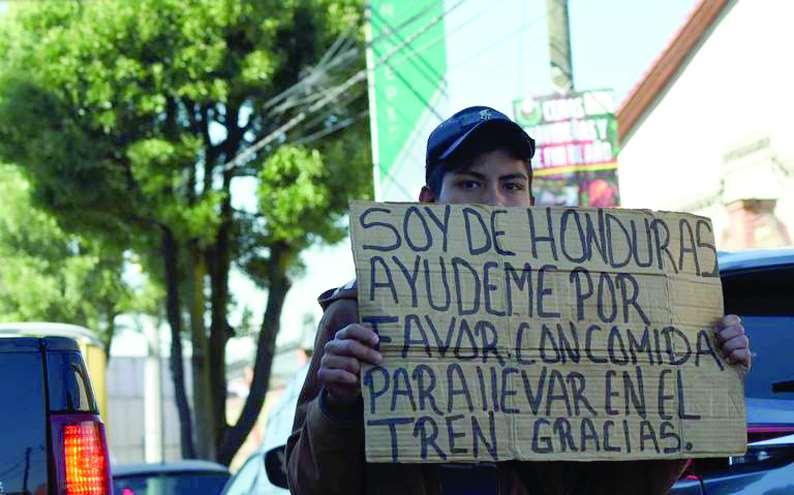 SOY DE HONDURAS
AYUDEME POR
FAVOR. CON COMIDA
PARA llEVAR EN EL
TREN GRACIAS.